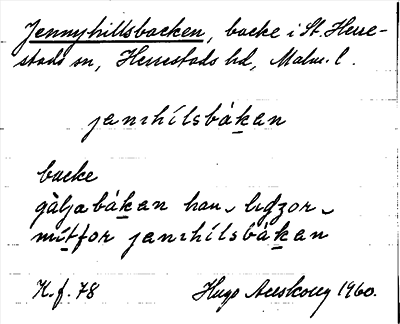 Jennyhillsbacken, backe i St. Herre-
stads sn, Herrestads hd, Malm. l.
jenıhílsbákan
backe
gàljabákan han ligzor
mítfor jenıhílsbákan
K.f. 78
Hugo Areskoug 1960.